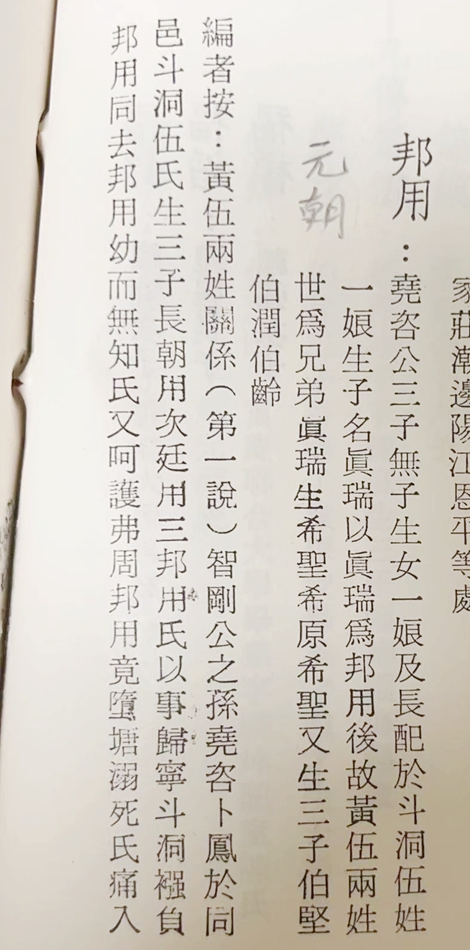 家莊潮邊陽江恩平等處
邦用：堯咨公三子無子生女一娘及長配於斗洞伍姓
一娘生子名眞瑞以眞瑞爲邦用後故黃伍兩姓
世爲兄弟眞瑞生希聖希原希聖又生三子伯堅
伯潤伯齡
元朝
編者按：黃伍兩姓關係（第一說）智剛公之孫堯咨卜鳳於同
邑斗洞伍氏生三子長朝用次廷用三邦用氏以事歸寧斗洞襁負
邦用同去邦用幼而無知氏又呵護弗周邦用竟墮塘溺死氏痛入